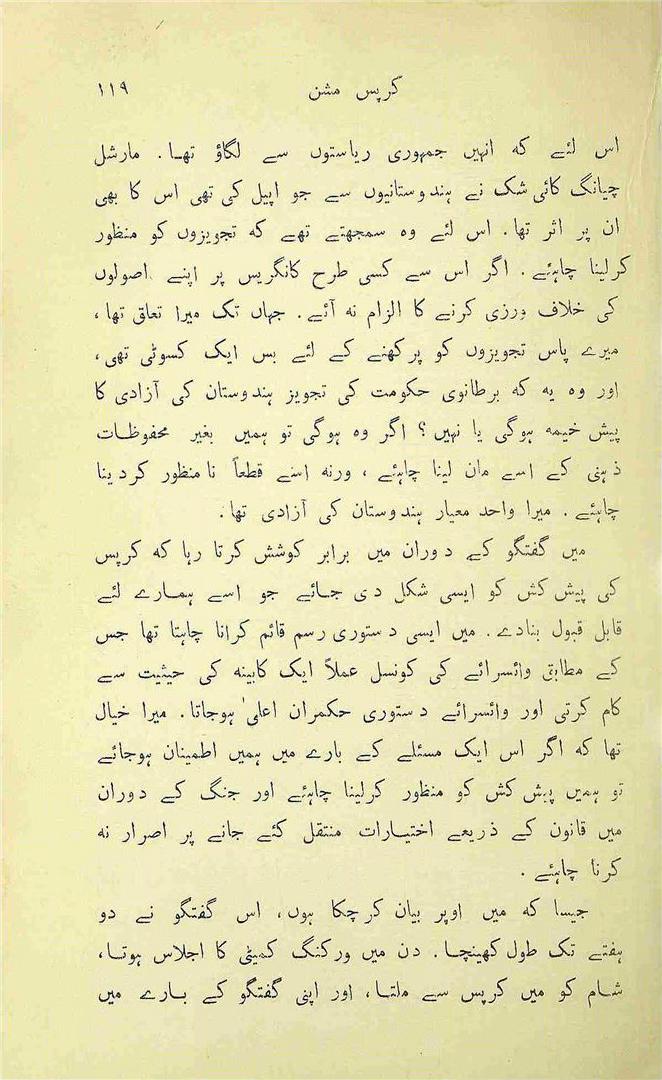 کرپس مشن ۱۱۹
اس لئے کہ انہیں جمہوری ریاستوں سے لگاؤ تھا۔ مارشل
چیانگ کائی شک نے ہندوستانیوں سے جو اپیل کی تھی اس کا بھی
ان پر اثر تھا۔ اس لئے وہ سمجھتے تھے کہ تجویزوں کو منظور
کرلینا چاہئے۔ اگر اس سے کسی طرح کانگریس پر اپنے اصولوں
کی خلاف ورزی کرنے کا الزام نہ آئے۔ جہاں تک میرا تعلق تھا،
میرے پاس تجویزوں کو پرکھنے کے لئے بس ایک کسوٹی تھی،
اور وہ یہ کہ برطانوی حکومت کی تجویز ہندوستان کی آزادی کا
پیش خیمہ ہوگی یا نہیں؟ اگر وہ ہوگی تو ہمیں بغیر محفوظات
ذہنی کے اسے مان لینا چاہئے، ورنہ اسے قطعاً نامنظور کردینا
چاہئے۔ میرا واحد معیار ہندوستان کی آزادی تھا۔
میں گفتگو کے دوران میں برابر کوشش کرتا رہا کہ کرپس
کی پیش کش کو ایسی شکل دی جائے جو اسے ہمارے لئے
قابل قبول بنادے۔ میں ایسی دستوری رسم قائم کرانا چاہتا تھا جس
کے مطابق وائسرائے کی کونسل عملاً ایک کابینہ کی حیثیت سے
کام کرتی اور وائسرائے دستوری حکمران اعلیٰ ہوجاتا۔ میرا خیال
تھا کہ اگر اس ایک مسئلے کے بارے میں ہمیں اطمینان ہوجائے
تو ہمیں پیش کش کو منظور کرلینا چاہئے اور جنگ کے دوران
میں قانون کے ذریعے اختیارات منتقل کئے جانے پر اصرار نہ
کرنا چاہئے۔
جیسا کہ میں اوپر بیان کرچکا ہوں، اس گفتگو نے دو
ہفتے تک طول کھینچا۔ دن میں ورکنگ کمیٹی کا اجلاس ہوتا،
شام کو میں کرپس سے ملتا، اور اپنی گفتگو کے بارے میں